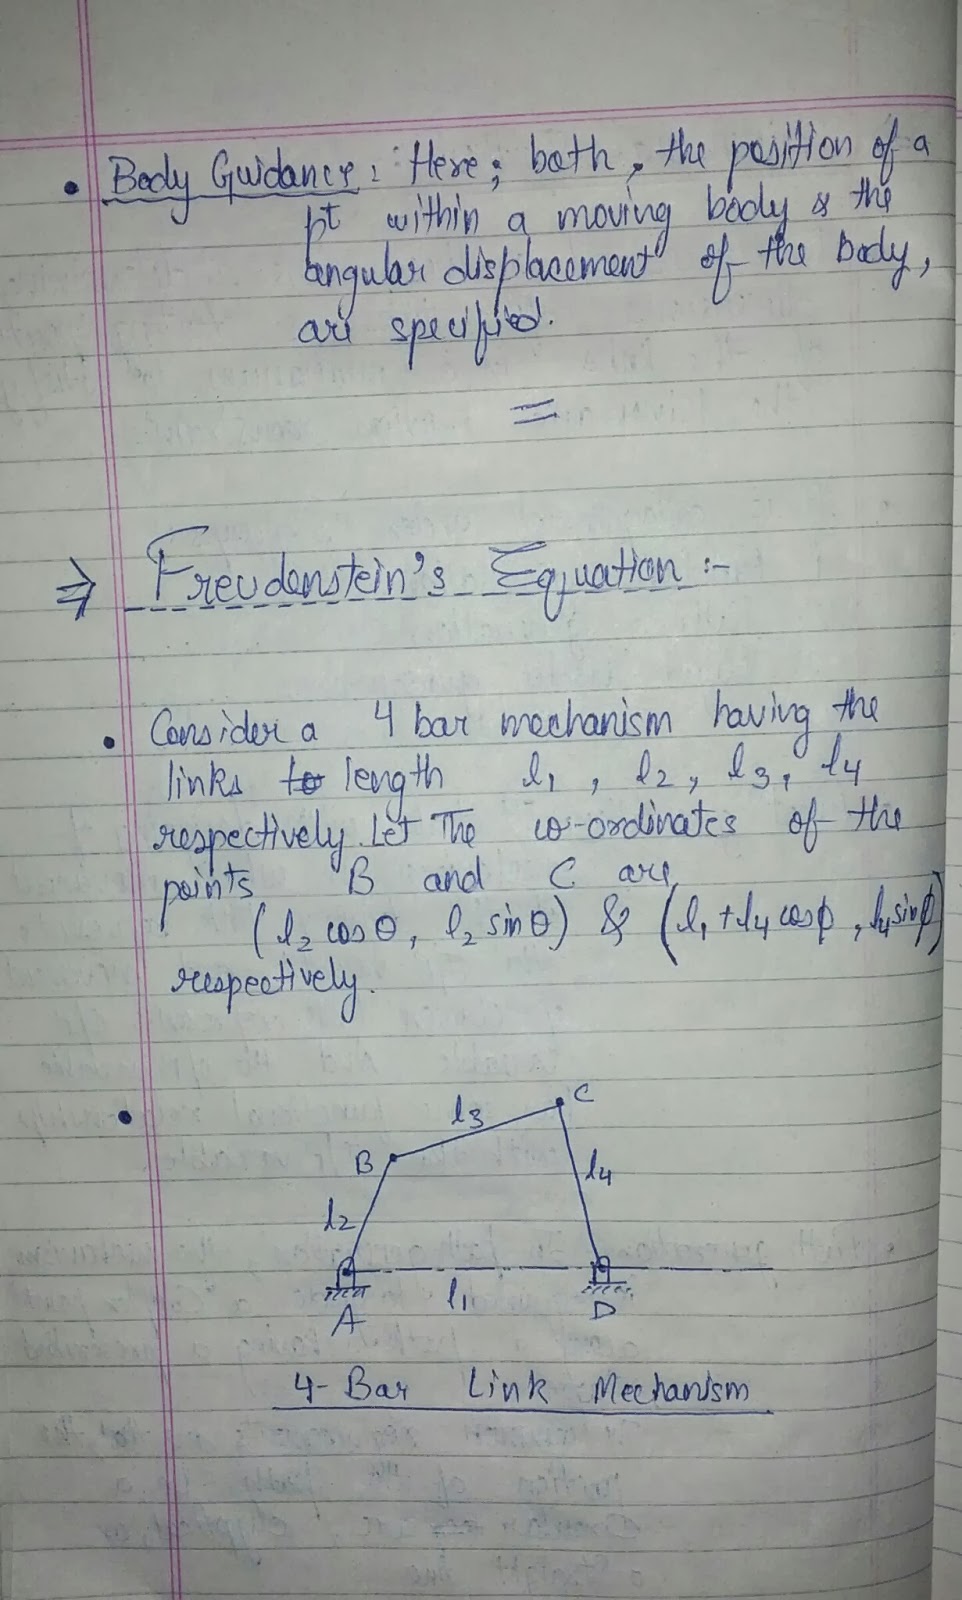 • Body Guidance : Here ; both , the position of a
pt within a moving body & the
angular displacement of the body,
are specified.
=
⇒ Freudenstein's Equation :-
• Consider a 4 bar mechanism having the
links to length l1 , l2, l3, l4
respectively. Let The co-ordinates of the
points B and C are
(l2 cosθ, l2 sinθ) & (l1 + l4 cosϕ , l4 sinϕ)
respectively.
•
C
l3
B
l4
l2
l1
A
D
4-Bar Link Mechanism